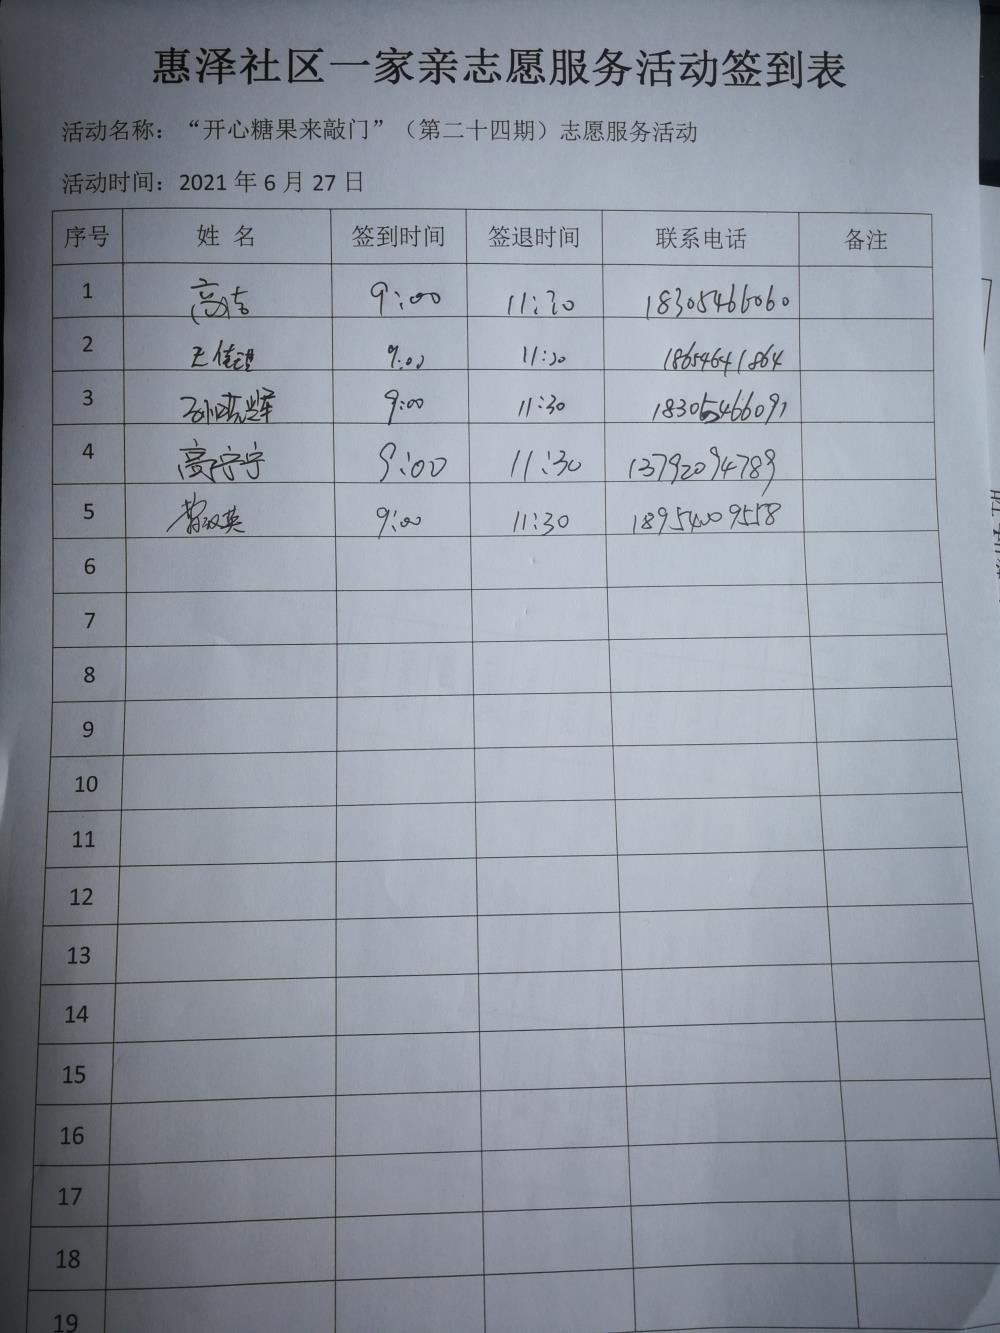 惠泽社区一家亲志愿服务活动签到表
活动名称：“开心糖果来敲门”（第二十四期）志愿服务活动
活动时间：2021 年 6 月 27 日
序号 姓 名 签到时间 签退时间 联系电话 备注
1 高洁 9:00 11:30 18305466060
2 王佳 9:00 11:30 18654641864
3 孙晓军 9:00 11:30 18305466091
4 高宁宁 9:00 11:30 13792094789
5 双英 9:00 11:30 18954009558
6
7
8
9
10
11
12
13
14
15
16
17
18
19